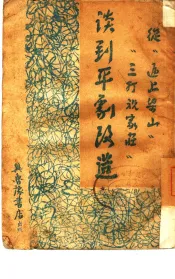 從“逼上梁山”
“三打祝家莊”
談到平劇改造
冀魯豫書店